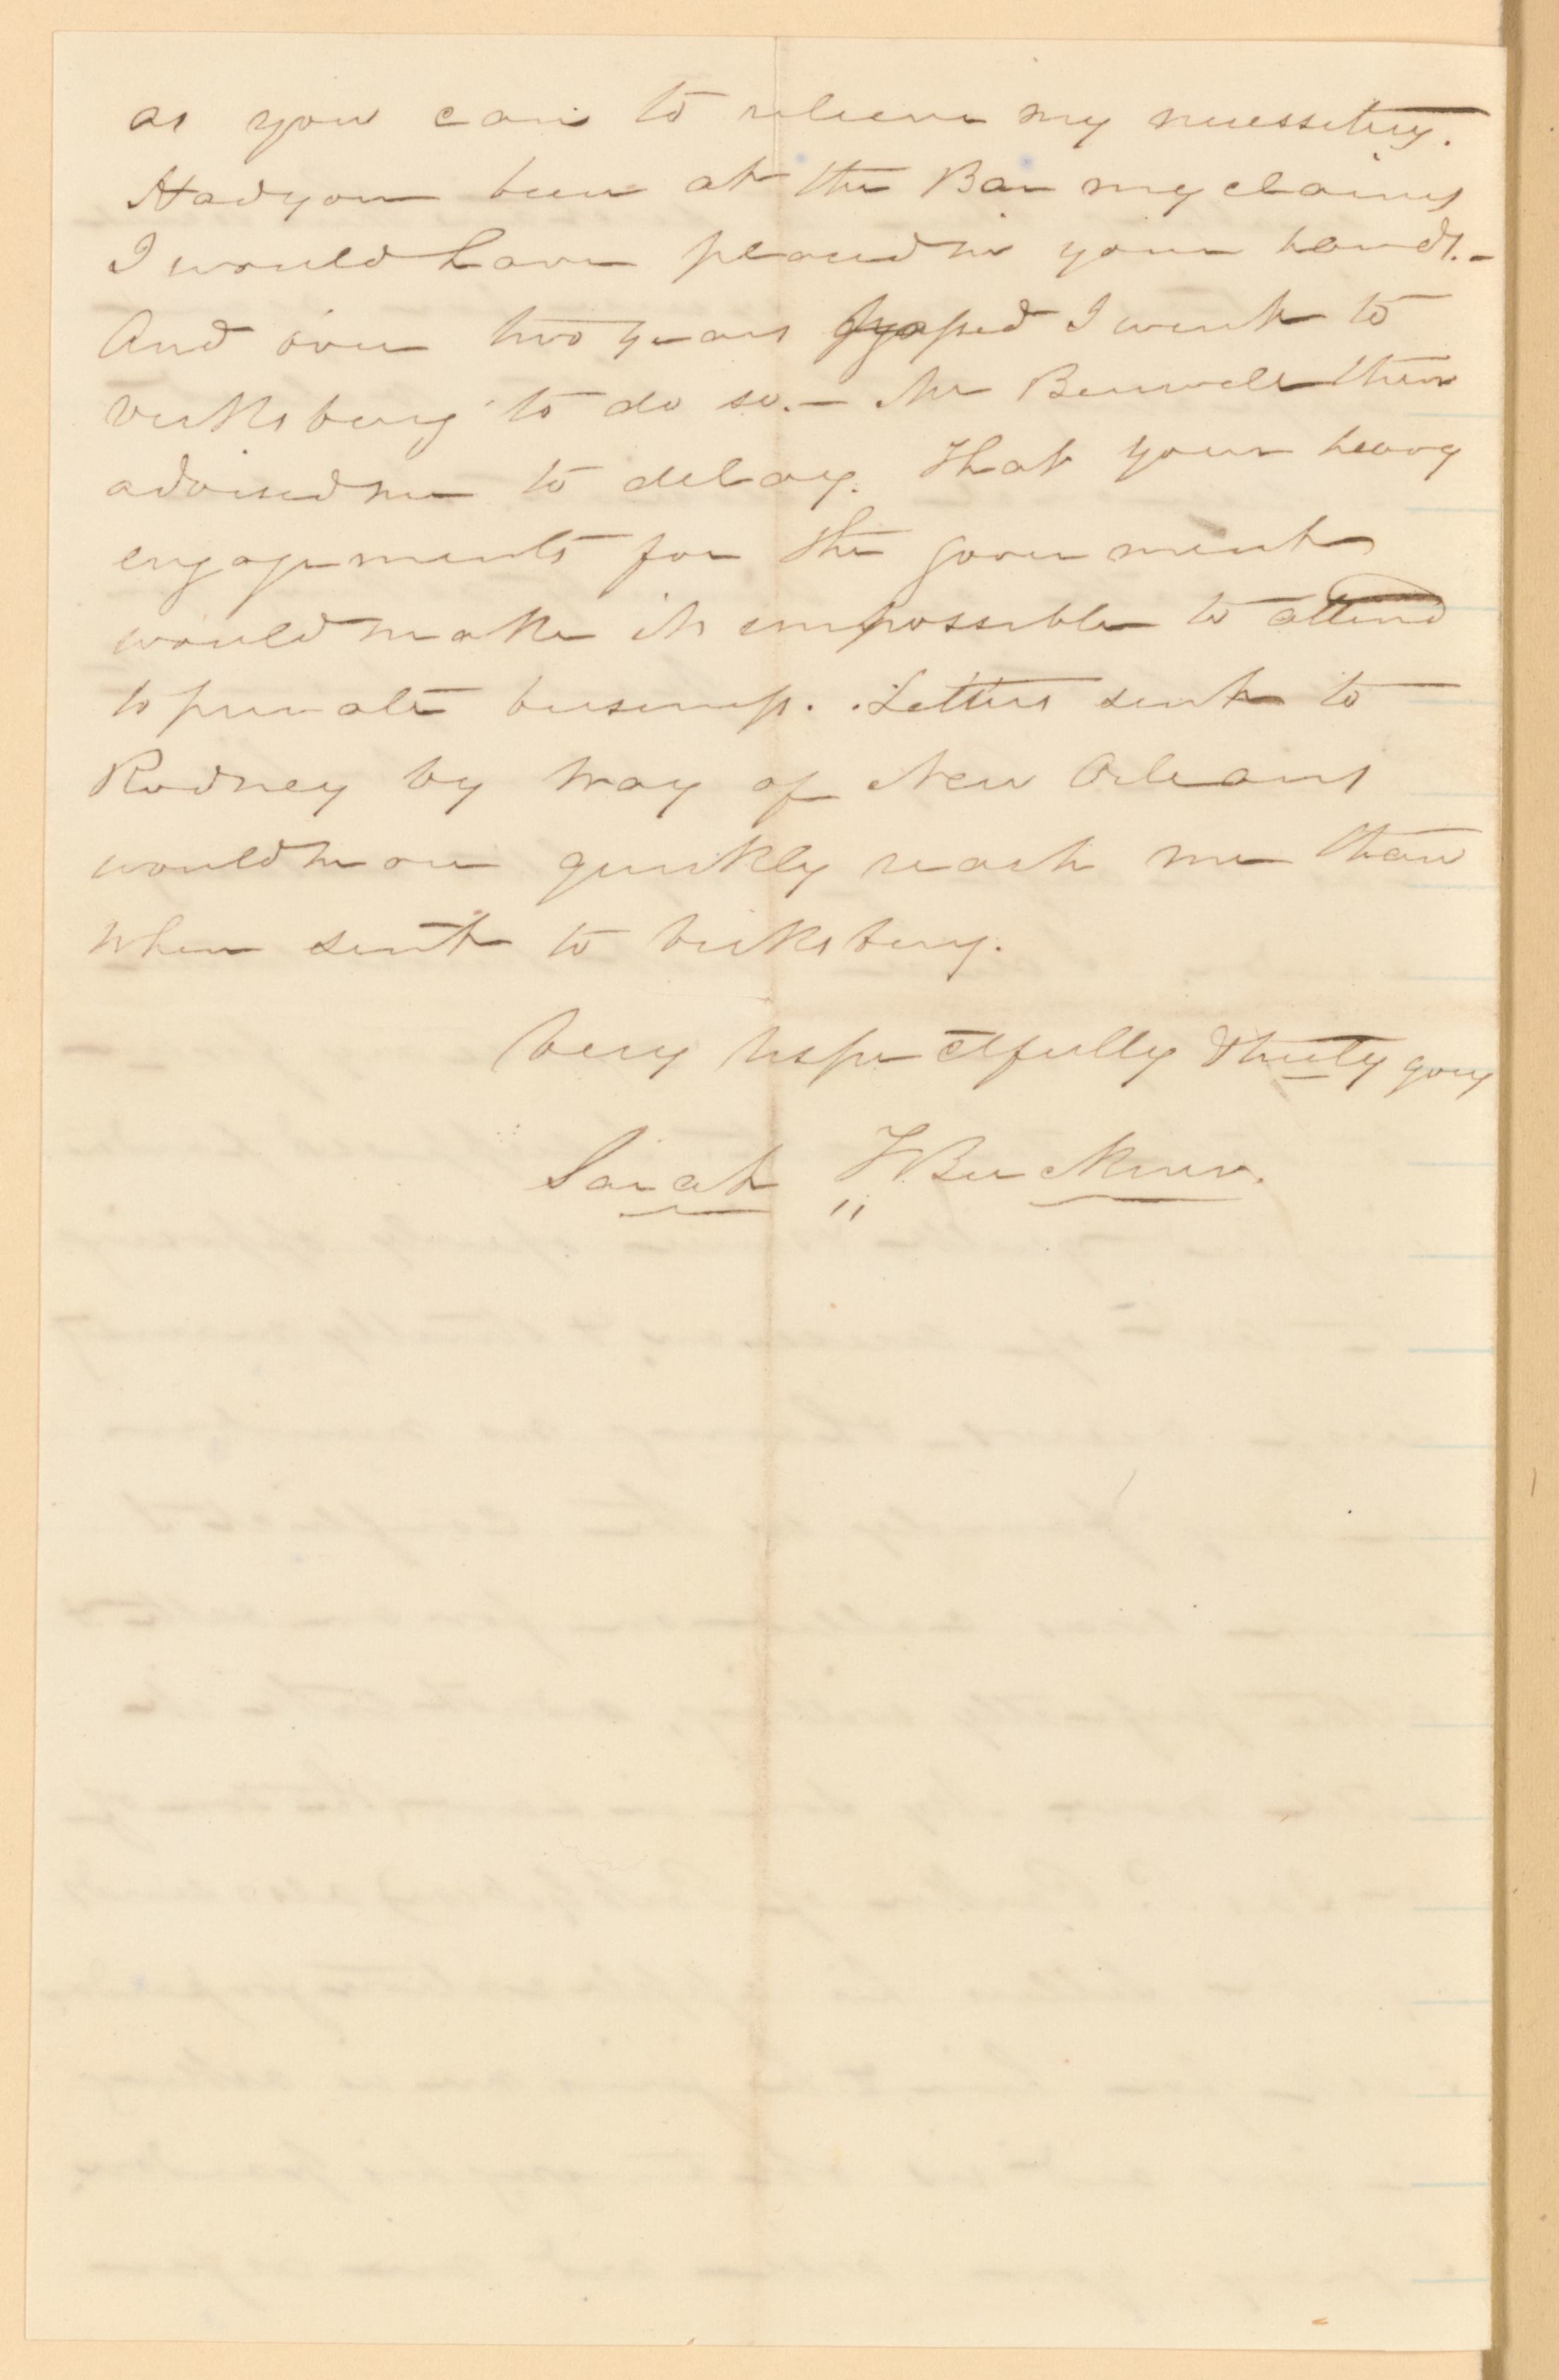 as you can to relieve my necessity.
Had you been at the Bar my claims
I would have placed in your hands. -
And over two years I went to
Vicksburg to do so. - Mr Burwell then
advised me to delay. That your heavy
engagements for the government
would make it impossible to attend
to private business. Letters sent to
Rodney by way of New Orleans
would more quickly reach me than
when sent to Vicksburg.
Very respectfully & truly yours
Sarah F Buckner.